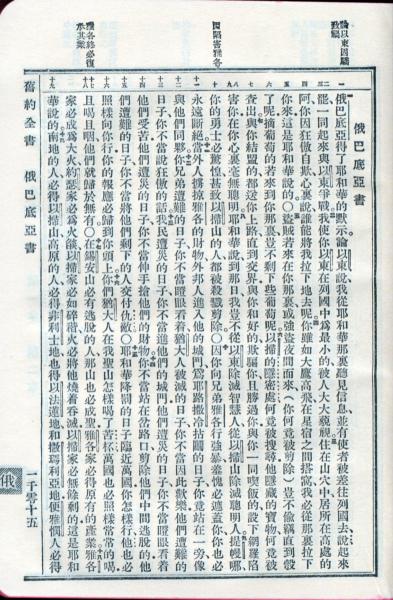 論以東因驕
致禍
因陷害雅各
雅各終必復
承其業
俄巴底亞書
俄巴底亞得了耶和華的默示論以東說我從耶和華那裏聽見信息並有使者被差往列國去說起來
罷一同起來與以東爭戰我使你以東在列國中爲最小的被人大大藐視住在山穴中居所在高處的
阿你因狂傲自欺心裏說誰能將我拉下地去呢你雖如大鷹高飛在星宿之間搭窩我必從那裏拉下
你來這是耶和華說的○盜賊若來在你那裏或強盜夜間而來(你何竟被剪除)豈不偷竊直到彀
了呢摘葡萄的若來到你那裏豈不剩下些葡萄呢以掃的隱密處何竟被搜尋他隱藏的寶物何竟被
查出與你結盟的都送你上路直到交界與你和好的欺騙你且勝過你與你一同喫飯的設下網羅陷
害你在你心裏毫無聰明耶和華說到那日我豈不從以東除滅智慧人從以掃山除滅聰明人提幔哪
你的勇士必驚惶甚致以掃山的人都被殺戮剪除○因你向兄弟雅各行強暴羞愧必遮蓋你你也必
永遠斷絕當外人擄掠雅各的財物外邦人進入他的城門爲耶路撒冷拈鬮的日子你竟站在一旁像
與他們同夥你兄弟遭難的日子你不當瞪眼看着猶大人被滅的日子你不當因此歡樂他們遭難的
日子你不當說狂傲的話我民遭災的日子你不當進他們的城門他們遭災的日子你不當瞪眼看着
他們受苦他們遭災的日子你不當伸手搶他們的財物你不當站在岔路口剪除他們中間逃脫的他
們遭難的日子你不當將他們剩下的人交付仇敵○耶和華降罰的日子臨近萬國你怎樣行他也必
照樣向你行你的報應必歸到你頭上你們猶大人在我聖山怎樣喝了苦杯萬國也必照樣常常的喝
且喝且咽他們就歸於無有○在錫安山必有逃脫的人那山也必成聖雅各家必得原有的產業雅各
家必成爲大火約瑟家必爲火燄以掃家必如碎稭火必將他燒着吞滅以掃家必無餘剩的這是耶和
華說的南地的人必得以掃山高原的人必得非利士地也得以法蓮地和撒瑪利亞地便雅憫人必得
舊約全書 俄巴底亞書
一千零十五
俄